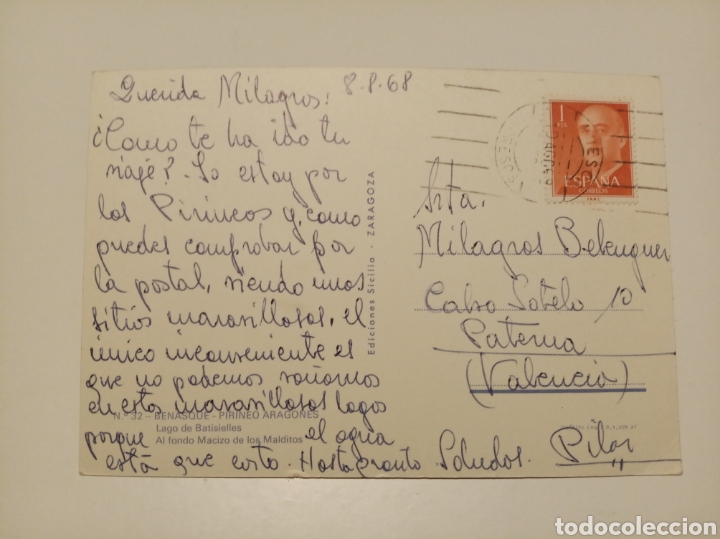 Querida Milagros: 8-8-68
¿Como te ha ido tu
viaje? Yo estoy por
los Pirineos y, como
puedes comprobar por
la postal, viendo unos
sitios maravillosos, el
único inconveniente es
que no podemos bañarnos
en estos maravillosos lagos
porque el agua
está que corta. Hasta pronto. Saludos. Pilar
Nº 32 - BENASQUE - PIRINEO ARAGONES
Lago de Batisielles
Al fondo Macizo de los Malditos
Ediciones Sicilia - ZARAGOZA
1
PTA
ESPAÑA
CORREOS
Srta.
Milagros Belenguer
Calvo Sotelo 10
Paterna
(Valencia)
todocoleccion